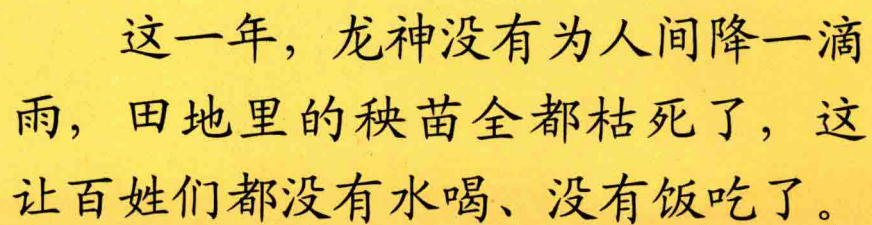 这一年，龙神没有为人间降一滴
雨，田地里的秧苗全都枯死了，这
让百姓们都没有水喝、没有饭吃了。